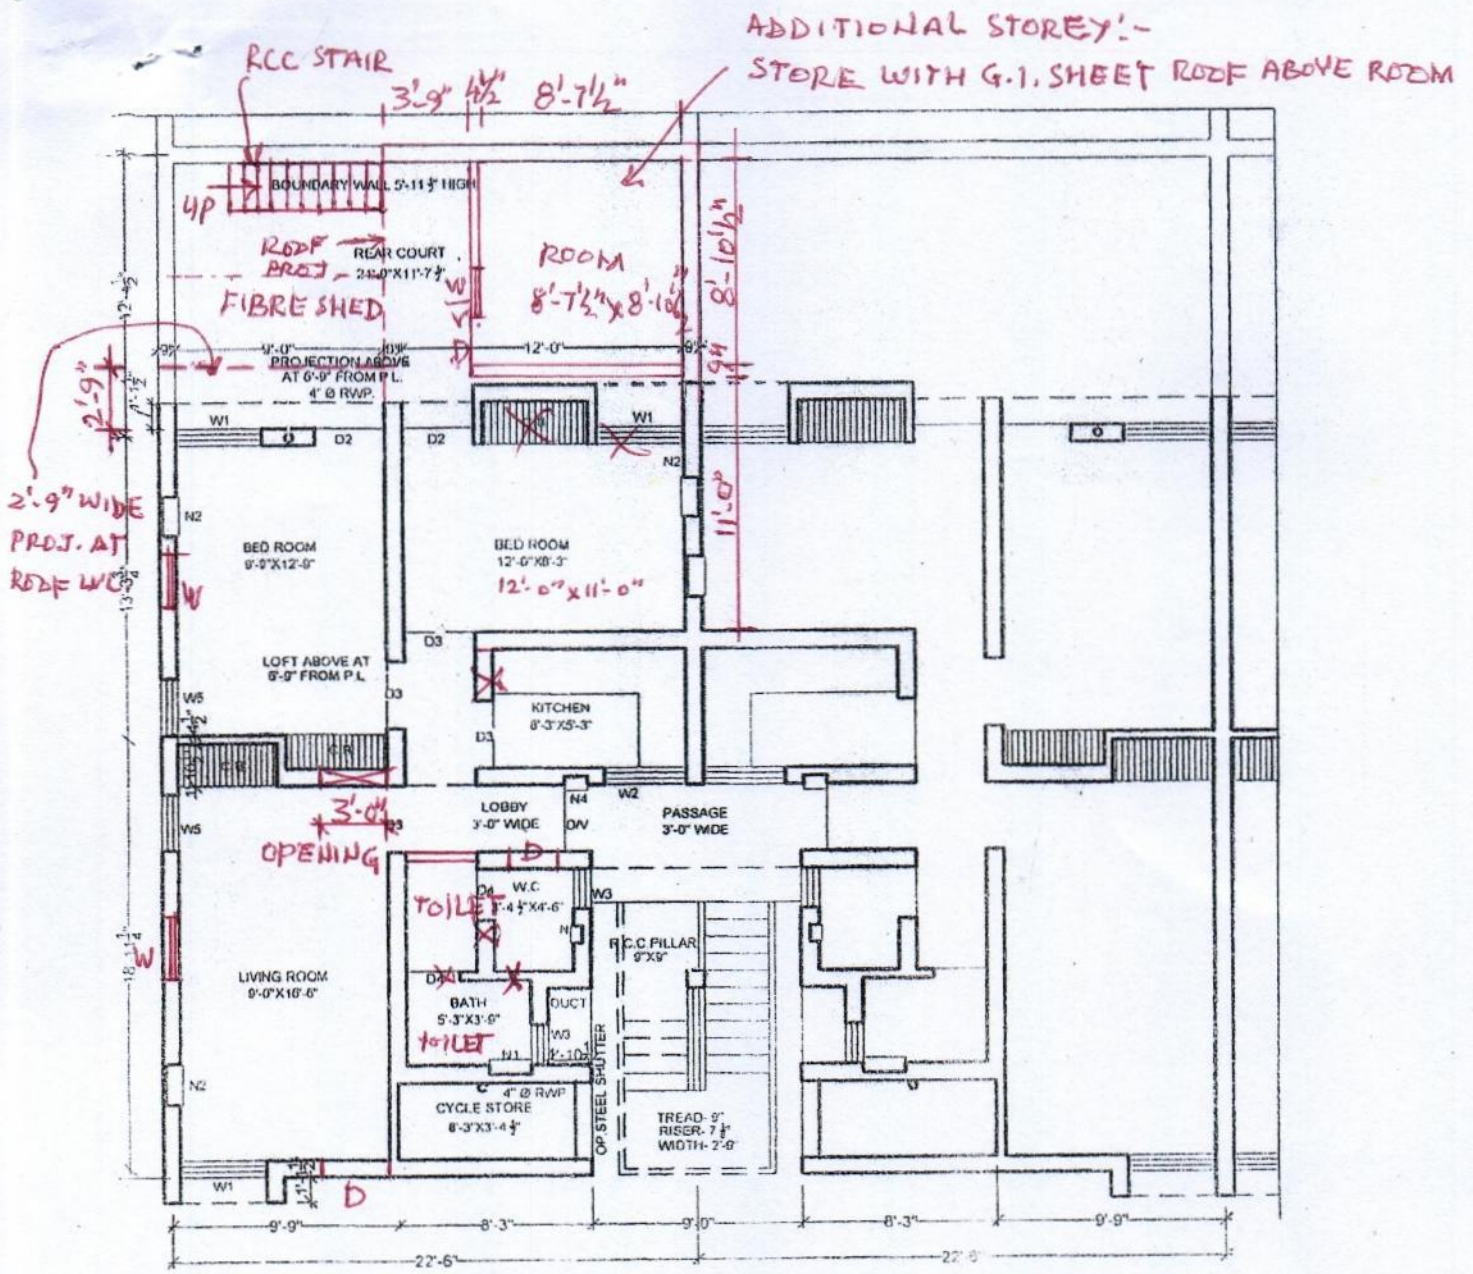 ADDITIONAL STOREY:-
STORE WITH G.I. SHEET ROOF ABOVE ROOM
RCC STAIR
3'-9" 4½" 8'-7½"
BOUNDARY WALL 5'-11½" HIGH
UP
ROOF
PROJ.
REAR COURT
FIBRE SHED
ROOM
8'-7½" x 8'-10½"
8'-10½"
12'-4½"
D
W
9" 9'-0" 12'-0" 9"
9"
PROJECTION ABOVE
AT 6'-9" FROM P.L.
4" Ø RWP.
2'-9"
W1 D2 D2 W1
N2
2'-9" WIDE
PROJ. AT
ROOF
N2
W
BED ROOM
9'-9"X12'-9"
BED ROOM
12'-0"X8'-3"
12'-0" x 11'-0"
11'-0"
13'-3¾"
D3
LOFT ABOVE AT
6'-9" FROM P.L
D3
W5
4½"
KITCHEN
8'-3"X5'-3"
D3
C.B
C.B
W5
3'-0"
D3
OPENING
LOBBY
3'-0" WIDE
N4
O/V
W2
PASSAGE
3'-0" WIDE
D
W.C
D4
TOILET
W3
N
R.C.C.PILLAR
9"X9"
W
18'-11¼"
LIVING ROOM
9'-0"X16'-6"
D4
BATH
5'-3"X3'-9"
TOILET
DUCT
W3
N1
1'-10½"
N2
4" Ø RWP
CYCLE STORE
8'-3"X3'-4½"
OP.STEEL SHUTTER
TREAD- 9"
RISER- 7½"
WIDTH- 2'-9"
W1
D
9'-9" 8'-3" 9'-0" 8'-3" 9'-9"
22'-6" 22'-6"